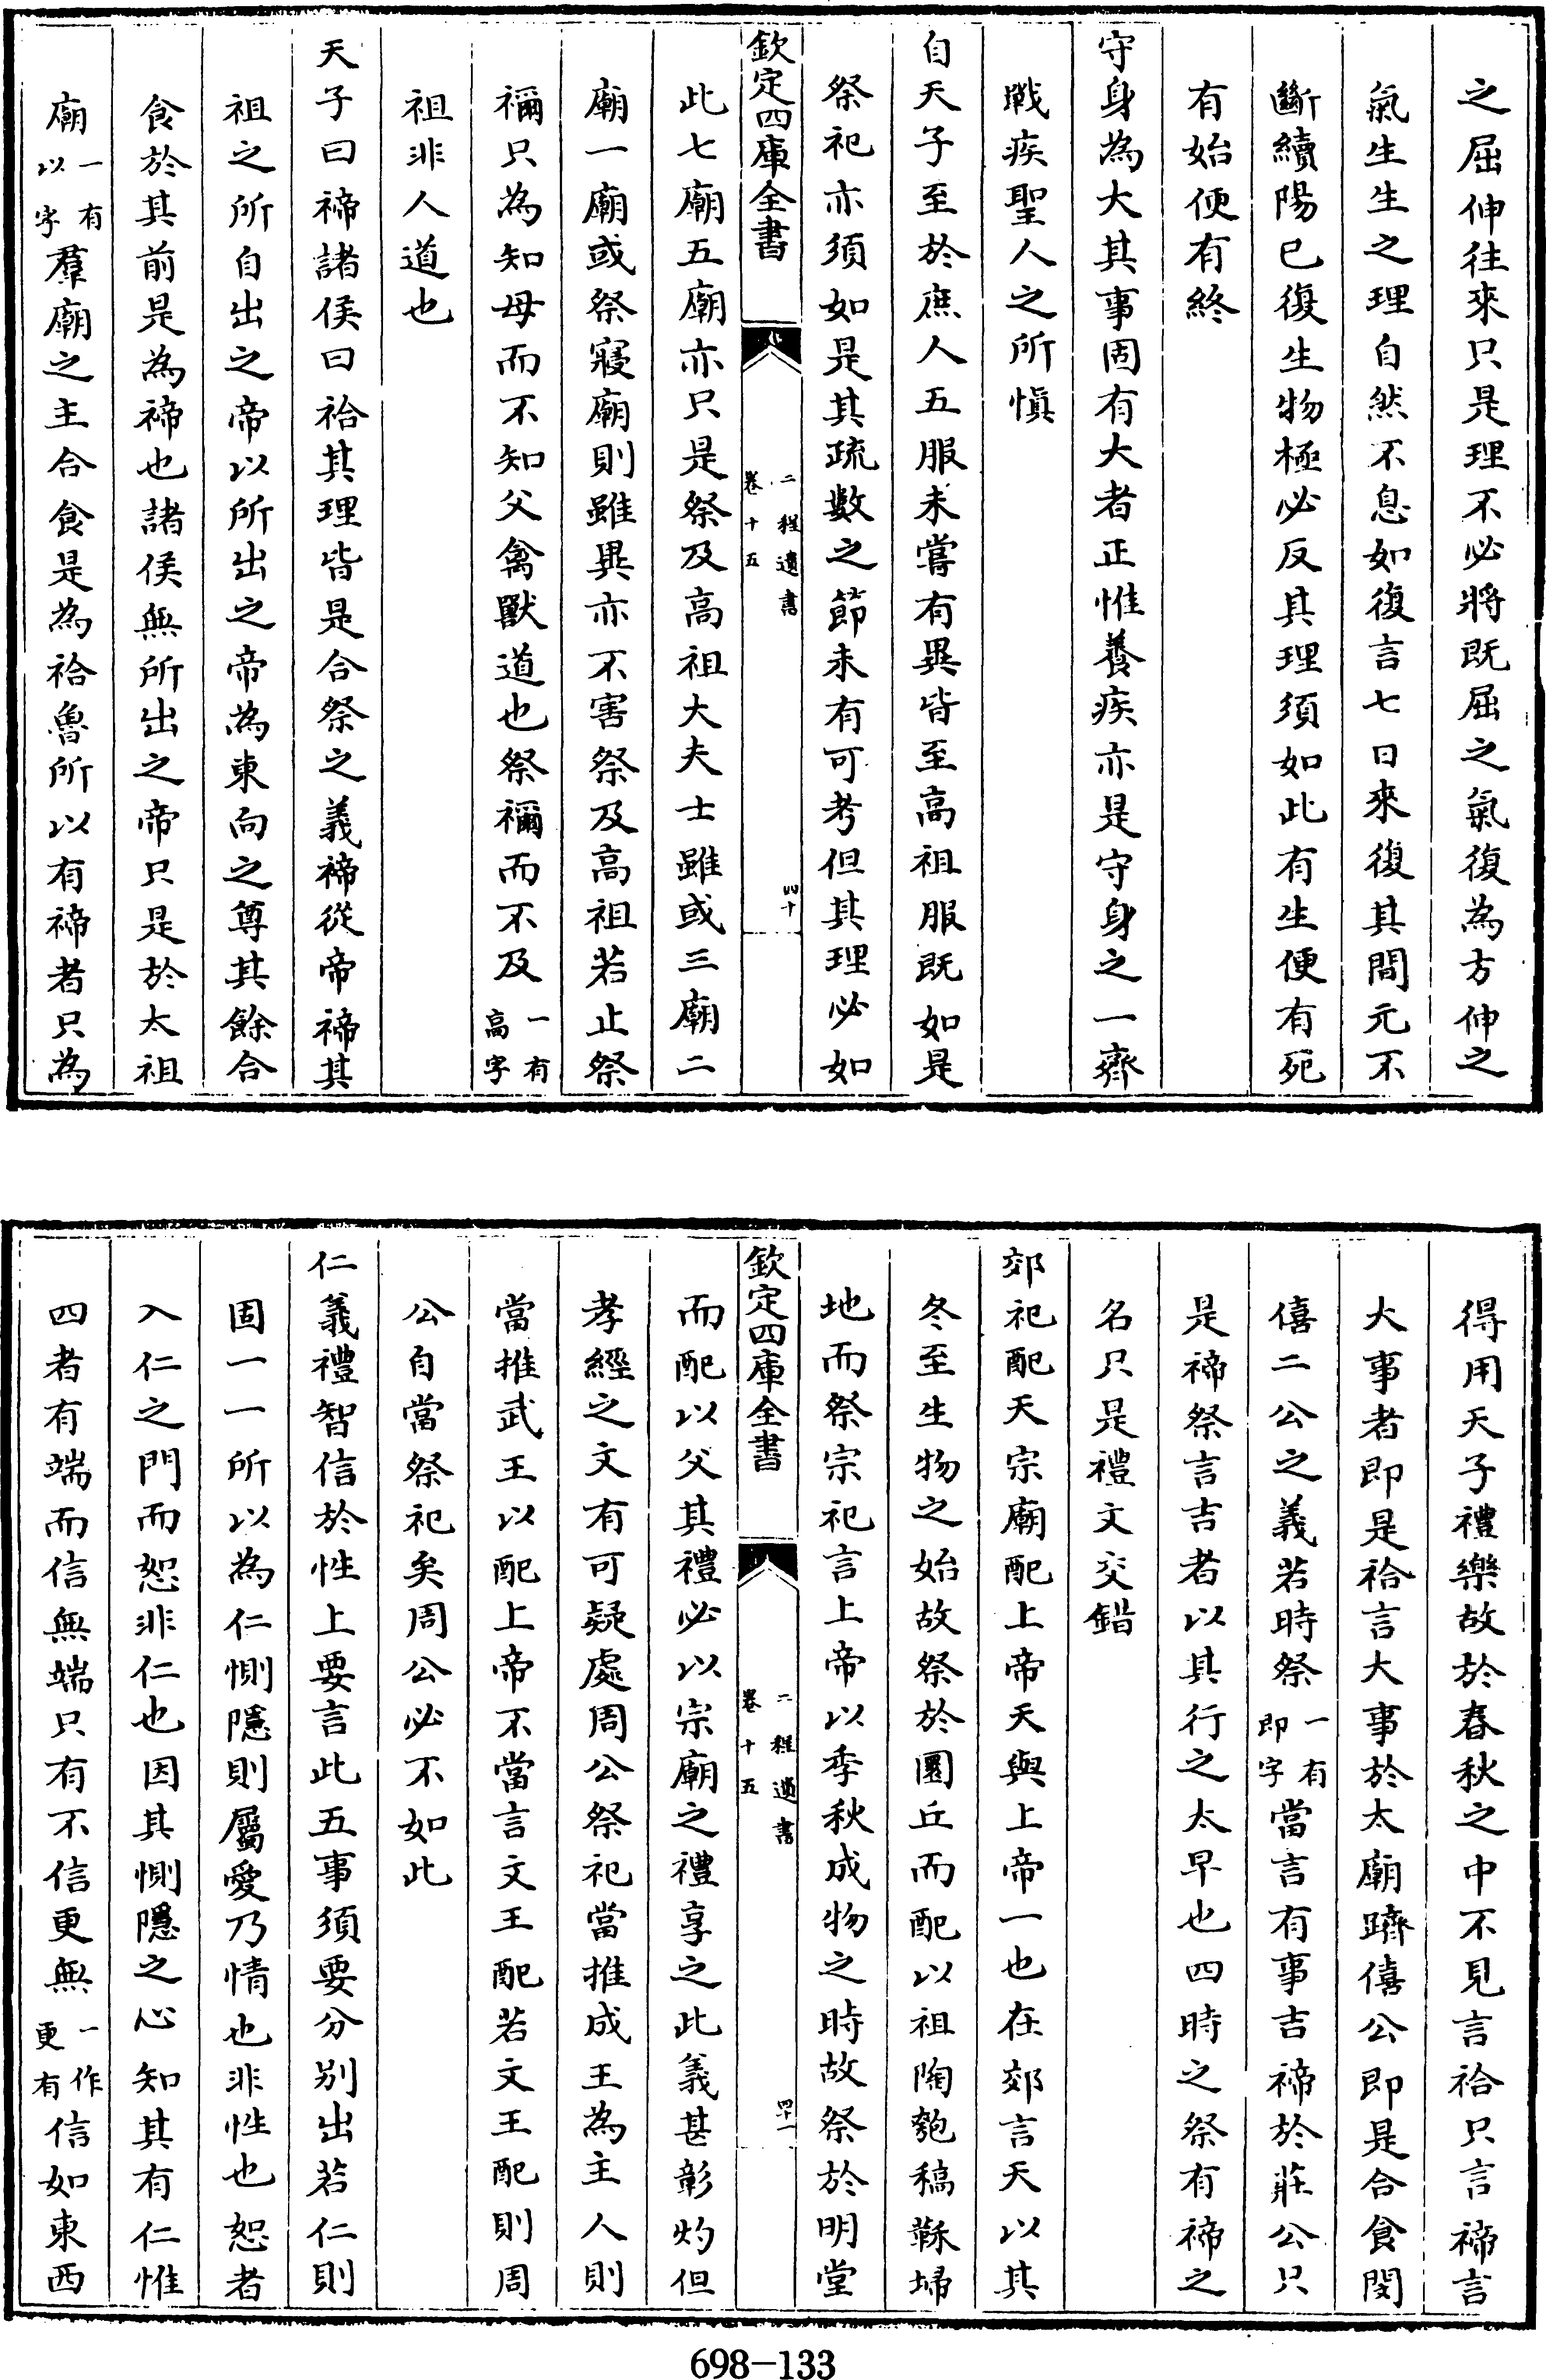 之屈伸往來只是理不必將既屈之氣復為方伸之
氣生生之理自然不息如復言七日來復其間元不
斷續陽已復生物極必反其理須如此有生便有死
有始便有終
守身為大其事固有大者正惟養疾亦是守身之一齊
戰疾聖人之所慎
自天子至於庶人五服未嘗有異皆至高祖服既如是
祭祀亦須如是其疏數之節未有可考但其理必如
欽定四庫全書
二程遺書
卷十五
四十
此七廟五廟亦只是祭及高祖大夫士雖或三廟二
廟一廟或祭寢廟則雖異亦不害祭及高祖若止祭
禰只為知母而不知父禽獸道也祭禰而不及一有高字
祖非人道也
天子曰禘諸侯曰祫其理皆是合祭之義禘從帝禘其
祖之所自出之帝以所出之帝為東向之尊其餘合
食於其前是為禘也諸侯無所出之帝只是於太祖
廟一有以字羣廟之主合食是為祫魯所以有禘者只為
得用天子禮樂故於春秋之中不見言祫只言禘言
大事者即是祫言大事於太廟躋僖公即是合食閔
僖二公之義若時祭一有即字當言有事吉禘於莊公只
是禘祭言吉者以其行之太早也四時之祭有禘之
名只是禮文交錯
郊祀配天宗廟配上帝天與上帝一也在郊言天以其
冬至生物之始故祭於圜丘而配以祖陶匏稿鞂埽
地而祭宗祀言上帝以季秋成物之時故祭於明堂
欽定四庫全書
二程遺書
卷十五
四十一
而配以父其禮必以宗廟之禮享之此義甚彰灼但
孝經之文有可疑處周公祭祀當推成王為主人則
當推武王以配上帝不當言文王配若文王配則周
公自當祭祀矣周公必不如此
仁義禮智信於性上要言此五事須要分別出若仁則
固一一所以為仁惻隱則屬愛乃情也非性也恕者
入仁之門而恕非仁也因其惻隱之心知其有仁惟
四者有端而信無端只有不信更無一作更有信如東西
698-133